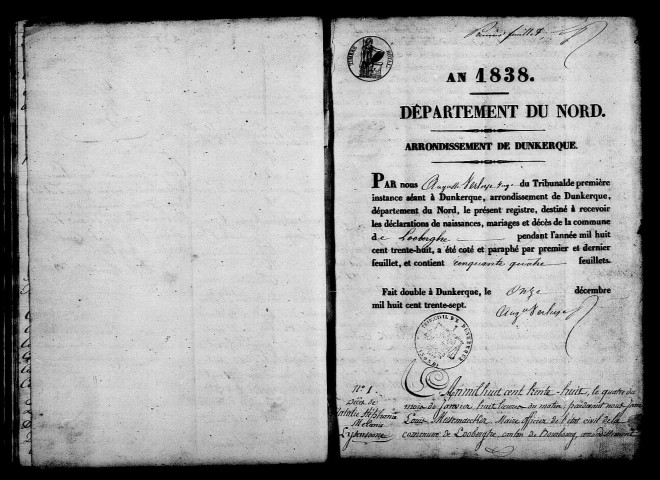 Premier feuillet
TIMBRE ROYAL
AN 1838.
DÉPARTEMENT DU NORD.
ARRONDISSEMENT DE DUNKERQUE.
PAR nous Auguste juge du Tribunal de première
instance séant à Dunkerque, arrondissement de Dunkerque,
département du Nord, le présent registre, destiné à recevoir
les déclarations de naissances, mariages et décès de la commune
de Looberghe pendant l'année mil huit
cent trente-huit, a été coté et paraphé par premier et dernier
feuillet, et contient cinquante quatre feuillets.
Fait double à Dunkerque, le onze décembre
mil huit cent trente-sept.
DE DUNKERQUE
N° 1.
Décès de
Natalie Stéphanie
Melanie
L'an mil huit cent trente-huit, le quatre du
mois de janvier huit heures du matin, pardevant nous
Louis Maire officier de l'état civil de la
commune de Looberghe canton de Bourbourg, arrondissement